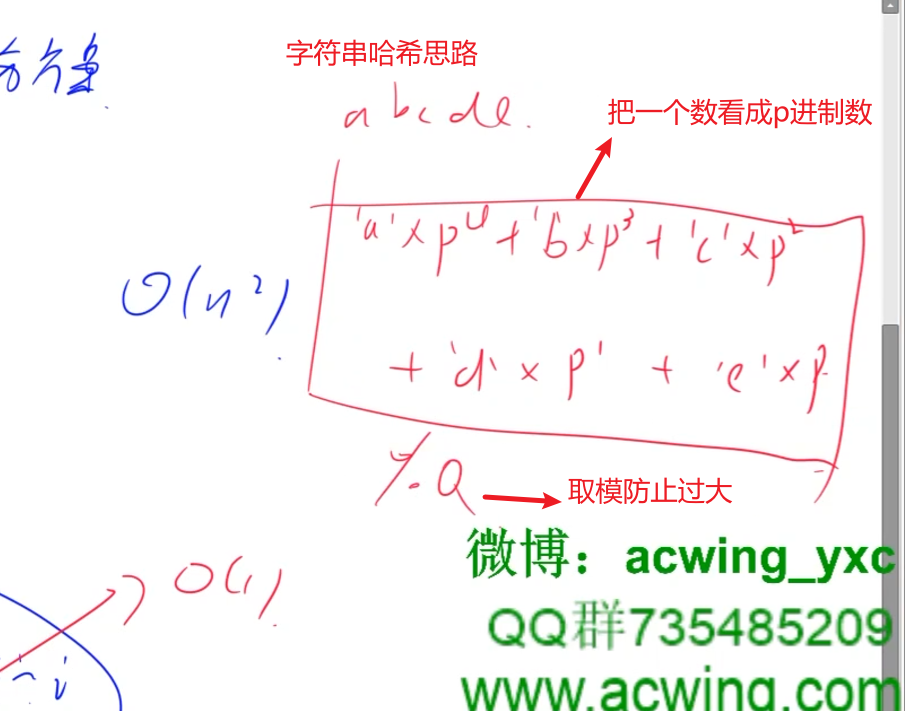 字符串哈希思路
abcde.
把一个数看成p进制数
'a'×p⁴+'b'×p³+'c'×p²
O(n²)
+'d'×p¹ + 'e'×p
%Q
取模防止过大
微博：acwing_yxc
O(1)
QQ群735485209
i
www.acwing.com